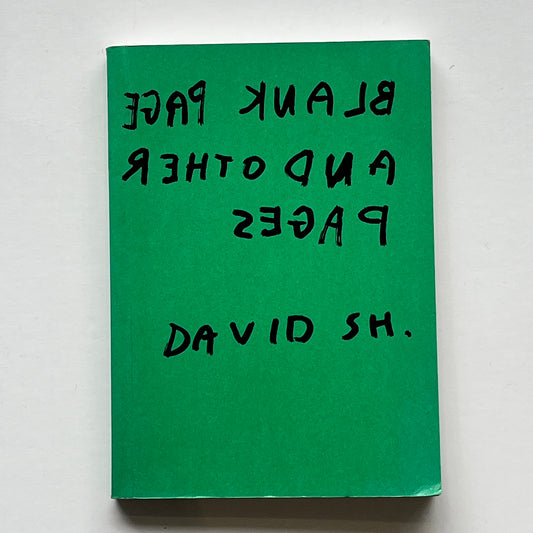 BLANK PAGE
AND OTHER
PAGES
DAVID SH.